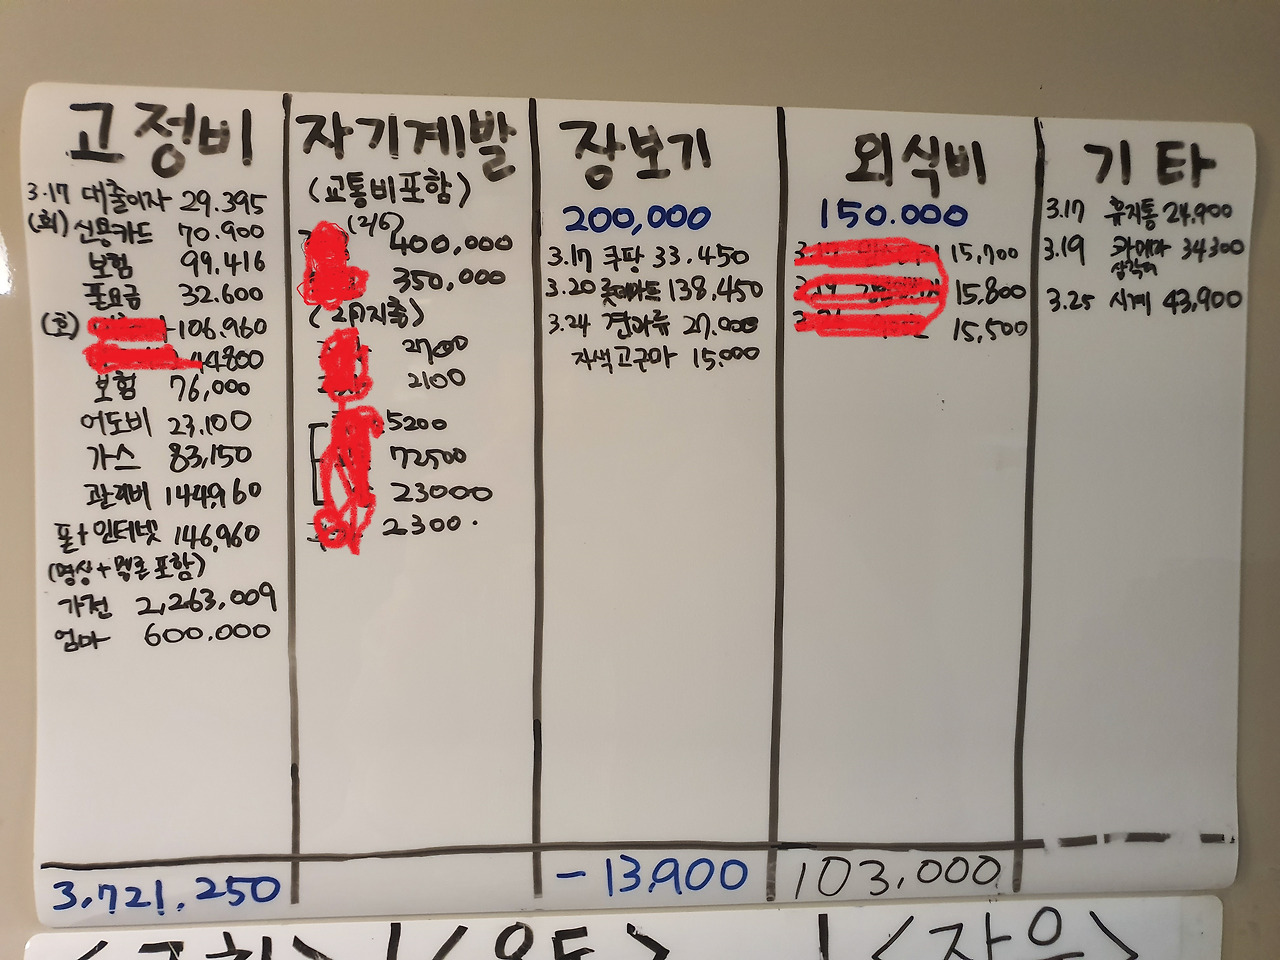 고정비
3.17 대출이자 29.395
(회) 신용카드 70.900
보험 99.416
폰요금 32.600
(호) 106.960
44800
보험 76,000
수도비 23,100
가스 83,150
관리비 144,960
폰+인터넷 146,960
(영상+멜론 포함)
가전 2,263,009
엄마 600.000
3,721,250
자기계발
(교통비포함)
(2/6)
400,000
350,000
(2月지출)
2700
2100
5200
72500
23000
2300.
장보기
200,000
3.17 쿠팡 33.450
3.20 롯데마트 138,450
3.24 견과류 27.000
자색고구마 15.000
-13,900
외식비
150.000
15,700
15.800
15,500
103,000
기타
3.17 휴지통 24,900
3.19 34300
삼각대
3.25 시계 43,900